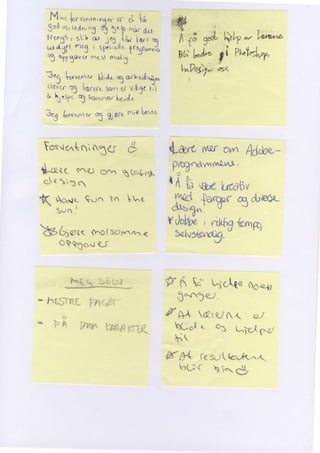 Mine forventninger er å få
god veiledning og hjelp når det
trengs, slik at jeg får lært og
utdypt meg i spesielle programmer
og oppgaver mest mulig
Jeg forventer blide og
elever og lærere som er villige til
å hjelpe og samarbeide
Jeg forventer og gjøre mitt beste
Å få god hjelp av lærerne
Bli bedre i Photoshop,
InDesign osv.
Forventninger
Lære mer om grafisk
design
Have fun in the
sun!
Gjøre morsomme
oppgaver
Lære mer om Adobe-
programmene.
Å få være kreativ
med farger og diverse
design.
Jobbe i riktig tempo,
selvstendig.
MEG SELV
- MESTRE FAGET
- FÅ BRA KARAKTER
Å få hjelpe noen
ganger.
At lærerne er
blide og hjelper
til
At resultatene
blir bra